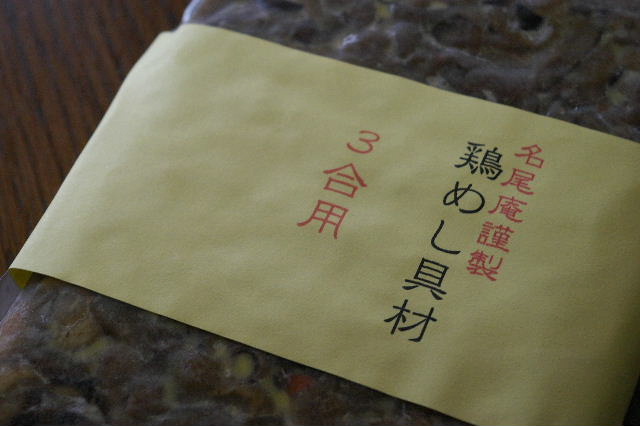 名尾庵謹製
鶏めし具材
3合用